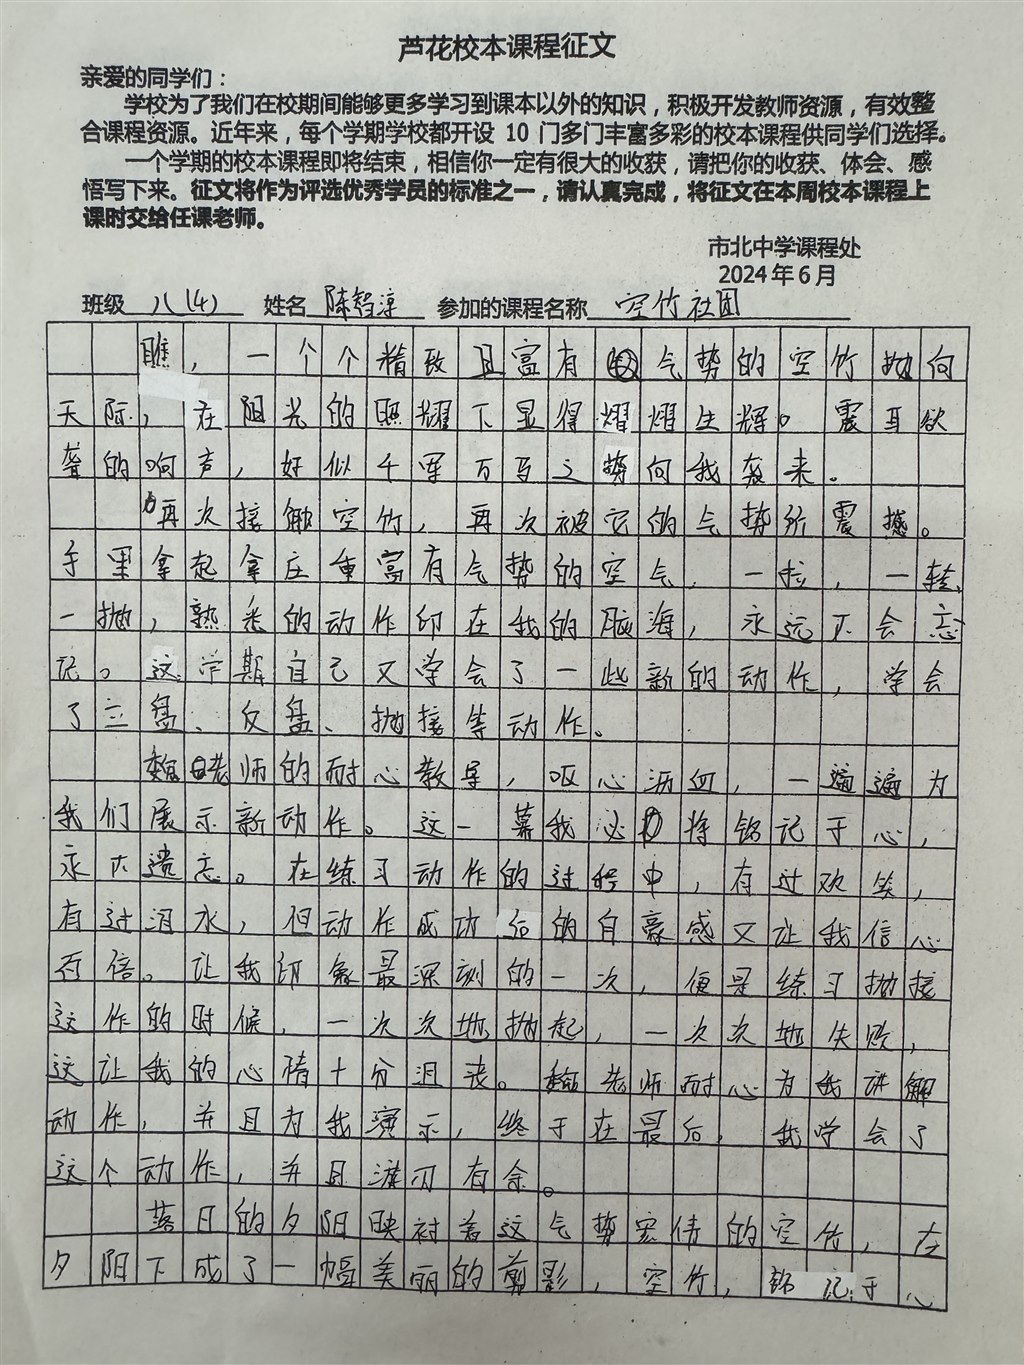 芦花校本课程征文
亲爱的同学们：
学校为了我们在校期间能够更多学习到课本以外的知识，积极开发教师资源，有效整
合课程资源。近年来，每个学期学校都开设 10 门多门丰富多彩的校本课程供同学们选择。
一个学期的校本课程即将结束，相信你一定有很大的收获，请把你的收获、体会、感
悟写下来。征文将作为评选优秀学员的标准之一，请认真完成，将征文在本周校本课程上
课时交给任课老师。
市北中学课程处
2024 年 6 月
班级 八(4) 姓名 陈智淳 参加的课程名称 空竹社团
瞧，一个个精致且富有气势的空竹抛向
天际，在阳光的照耀下显得熠熠生辉。震耳欲
聋的响声，好似千军万马之势向我袭来。
再次接触空竹，再次被它的气势所震撼。
手里拿起拿庄重富有气势的空气，一拉，一转，
一抛，熟悉的动作印在我的脑海，永远不会忘
记。这学期自己又学会了一些新的动作，学会
了立盘、反盘、抛接等动作。
魏老师的耐心教导，呕心沥血，一遍遍为
我们展示新动作。这一幕我必将铭记于心，
永不遗忘。在练习动作的过程中，有过欢笑，
有过泪水，但动作成功后的自豪感又让我信心
百倍。让我印象最深刻的一次，便是练习抛接
这作的时候，一次次地抛起，一次次地失败，
这让我的心情十分沮丧。魏老师耐心为我讲解
动作，并且为我演示，终于在最后，我学会了
这个动作，并且游刃有余。
落日的夕阳映衬着这气势宏伟的空竹，在
夕阳下成了一幅美丽的剪影，空竹，铭记于心